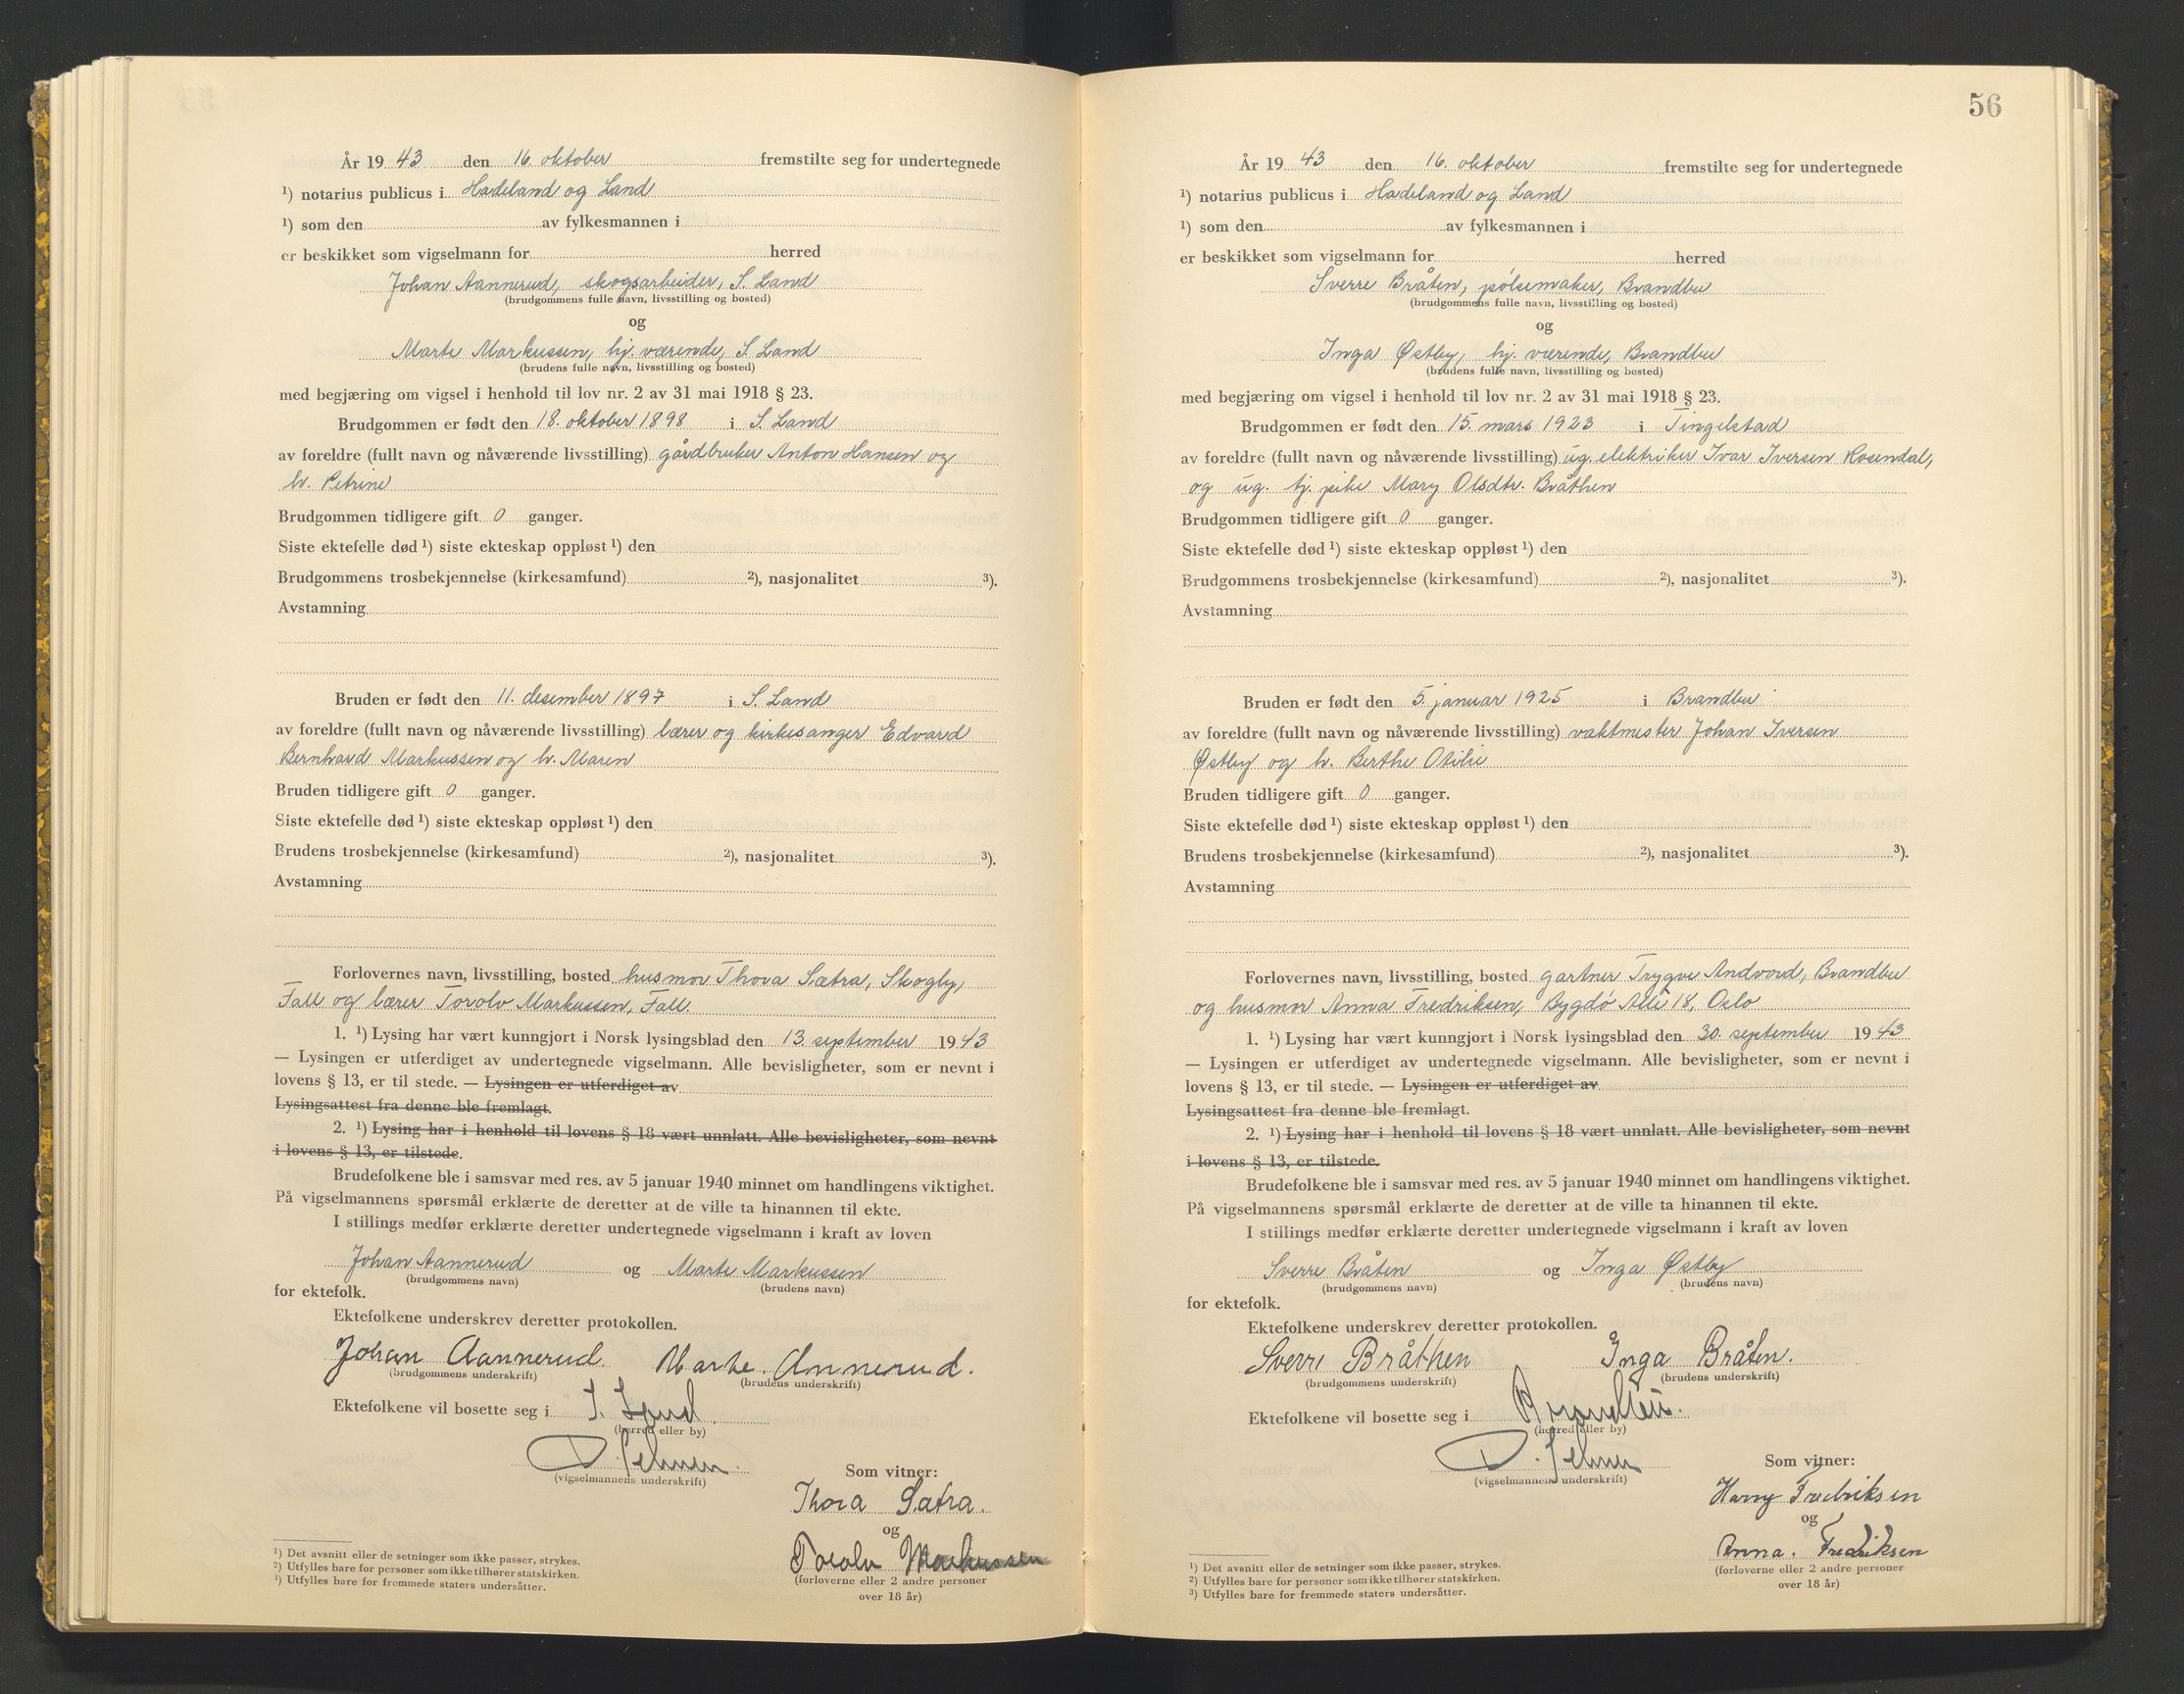 År 1943 den 16. oktober fremstilte seg for undertegnede
¹) notarius publicus i Hadeland og Land
¹) som den av fylkesmannen i
er beskikket som vigselmann for herred
Johan Aannerud, skogsarbeider, S. Land
(brudgommens fulle navn, livsstilling og bosted)
og
Marte Markussen, hj. værende, S. Land
(brudens fulle navn, livsstilling og bosted)
med begjæring om vigsel i henhold til lov nr. 2 av 31 mai 1918 § 23.
Brudgommen er født den 18. oktober 1898 i S. Land
av foreldre (fullt navn og nåværende livsstilling) gårdbruker Anton Hansen og
h. Petrine
Brudgommen tidligere gift 0 ganger.
Siste ektefelle død ¹) siste ekteskap oppløst ¹) den
Brudgommens trosbekjennelse (kirkesamfund) ²), nasjonalitet ³).
Avstamning
Bruden er født den 11. desember 1897 i S. Land
av foreldre (fullt navn og nåværende livsstilling) lærer og kirkesanger Edvard
Bernhard Markussen og h. Maren
Bruden tidligere gift 0 ganger.
Siste ektefelle død ¹) siste ekteskap oppløst ¹) den
Brudens trosbekjennelse (kirkesamfund) ²), nasjonalitet ³).
Avstamning
Forlovernes navn, livsstilling, bosted husmor Thora Sætra, Skogly,
Fall og lærer Torolv Markussen, Fall.
1. ¹) Lysing har vært kunngjort i Norsk lysingsblad den 13. september 1943
— Lysingen er utferdiget av undertegnede vigselmann. Alle bevisligheter, som er nevnt i
lovens § 13, er til stede. — Lysingen er utferdiget av
Lysingsattest fra denne ble fremlagt.
2. ¹) Lysing har i henhold til lovens § 18 vært unnlatt. Alle bevisligheter, som nevnt
i lovens § 13, er tilstede.
Brudefolkene ble i samsvar med res. av 5 januar 1940 minnet om handlingens viktighet.
På vigselmannens spørsmål erklærte de deretter at de ville ta hinannen til ekte.
I stillings medfør erklærte deretter undertegnede vigselmann i kraft av loven
Johan Aannerud og Marte Markussen
(brudgommens navn) (brudens navn)
for ektefolk.
Ektefolkene underskrev deretter protokollen.
Johan Aannerud. Marte. Annerud.
(brudgommens underskrift) (brudens underskrift)
Ektefolkene vil bosette seg i S. Land
(herred eller by)
(vigselmannens underskrift)
Som vitner:
Thora Sætra.
og
Torolv Markussen
(forloverne eller 2 andre personer
over 18 år)
¹) Det avsnitt eller de setninger som ikke passer, strykes.
²) Utfylles bare for personer som ikke tilhører statskirken.
³) Utfylles bare for fremmede staters undersåtter.
56
År 1943 den 16. oktober fremstilte seg for undertegnede
¹) notarius publicus i Hadeland og Land
¹) som den av fylkesmannen i
er beskikket som vigselmann for herred
Sverre Bråten, pølsemaker, Brandbu
(brudgommens fulle navn, livsstilling og bosted)
og
Inga Østby, hj. værende, Brandbu
(brudens fulle navn, livsstilling og bosted)
med begjæring om vigsel i henhold til lov nr. 2 av 31 mai 1918 § 23.
Brudgommen er født den 15. mars 1923 i Tingelstad
av foreldre (fullt navn og nåværende livsstilling) ug. elektriker Ivar Iversen Rosendal,
og ug. tj. pike Mary Olsdtr. Bråthen
Brudgommen tidligere gift 0 ganger.
Siste ektefelle død ¹) siste ekteskap oppløst ¹) den
Brudgommens trosbekjennelse (kirkesamfund) ²), nasjonalitet ³).
Avstamning
Bruden er født den 5. januar 1925 i Brandbu
av foreldre (fullt navn og nåværende livsstilling) vaktmester Johan Iversen
Østby og h. Berthe Otilie
Bruden tidligere gift 0 ganger.
Siste ektefelle død ¹) siste ekteskap oppløst ¹) den
Brudens trosbekjennelse (kirkesamfund) ²), nasjonalitet ³).
Avstamning
Forlovernes navn, livsstilling, bosted gartner Trygve Andvord, Brandbu
og husmor Anna Fredriksen, Bygdø Alle 18, Oslo
1. ¹) Lysing har vært kunngjort i Norsk lysingsblad den 30. september 1943
— Lysingen er utferdiget av undertegnede vigselmann. Alle bevisligheter, som er nevnt i
lovens § 13, er til stede. — Lysingen er utferdiget av
Lysingsattest fra denne ble fremlagt.
2. ¹) Lysing har i henhold til lovens § 18 vært unnlatt. Alle bevisligheter, som nevnt
i lovens § 13, er tilstede.
Brudefolkene ble i samsvar med res. av 5 januar 1940 minnet om handlingens viktighet.
På vigselmannens spørsmål erklærte de deretter at de ville ta hinannen til ekte.
I stillings medfør erklærte deretter undertegnede vigselmann i kraft av loven
Sverre Bråten og Inga Østby
(brudgommens navn) (brudens navn)
for ektefolk.
Ektefolkene underskrev deretter protokollen.
Sverre Bråthen Inga Bråten.
(brudgommens underskrift) (brudens underskrift)
Ektefolkene vil bosette seg i Brandbu.
(herred eller by)
(vigselmannens underskrift)
Som vitner:
Harry Fredriksen
og
Anna. Fredriksen
(forloverne eller 2 andre personer
over 18 år)
¹) Det avsnitt eller de setninger som ikke passer, strykes.
²) Utfylles bare for personer som ikke tilhører statskirken.
³) Utfylles bare for fremmede staters undersåtter.